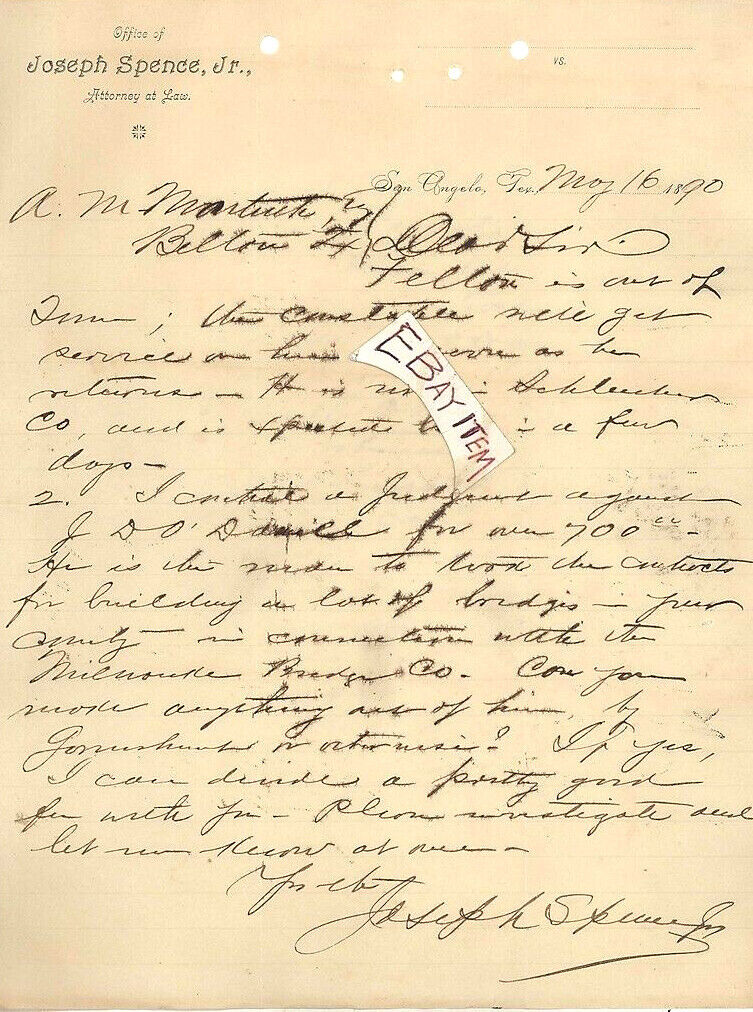 Office of
Joseph Spence, Jr.,
Attorney at Law.
vs.
San Angelo, Tex., May 16 1890
A. M.
Belton Tx Dear Sir:
Felton is out of
Town; the constable will get
service on him as soon as he
returns — He is now in Schleicher
Co, and is expected in a few
days —
2. I control a Judgment against
J D O'Daniel for over 700 —
He is the man to whom the contracts
for building a lot of bridges in your
county in connection with the
Milwaukee Bridge Co. Can you
make anything out of him, by
Garnishment or otherwise? If yes,
I can divide a pretty good
fee with you — Please investigate and
let me know at once —
Yrs etc
Joseph Spence Jr
EBAY ITEM